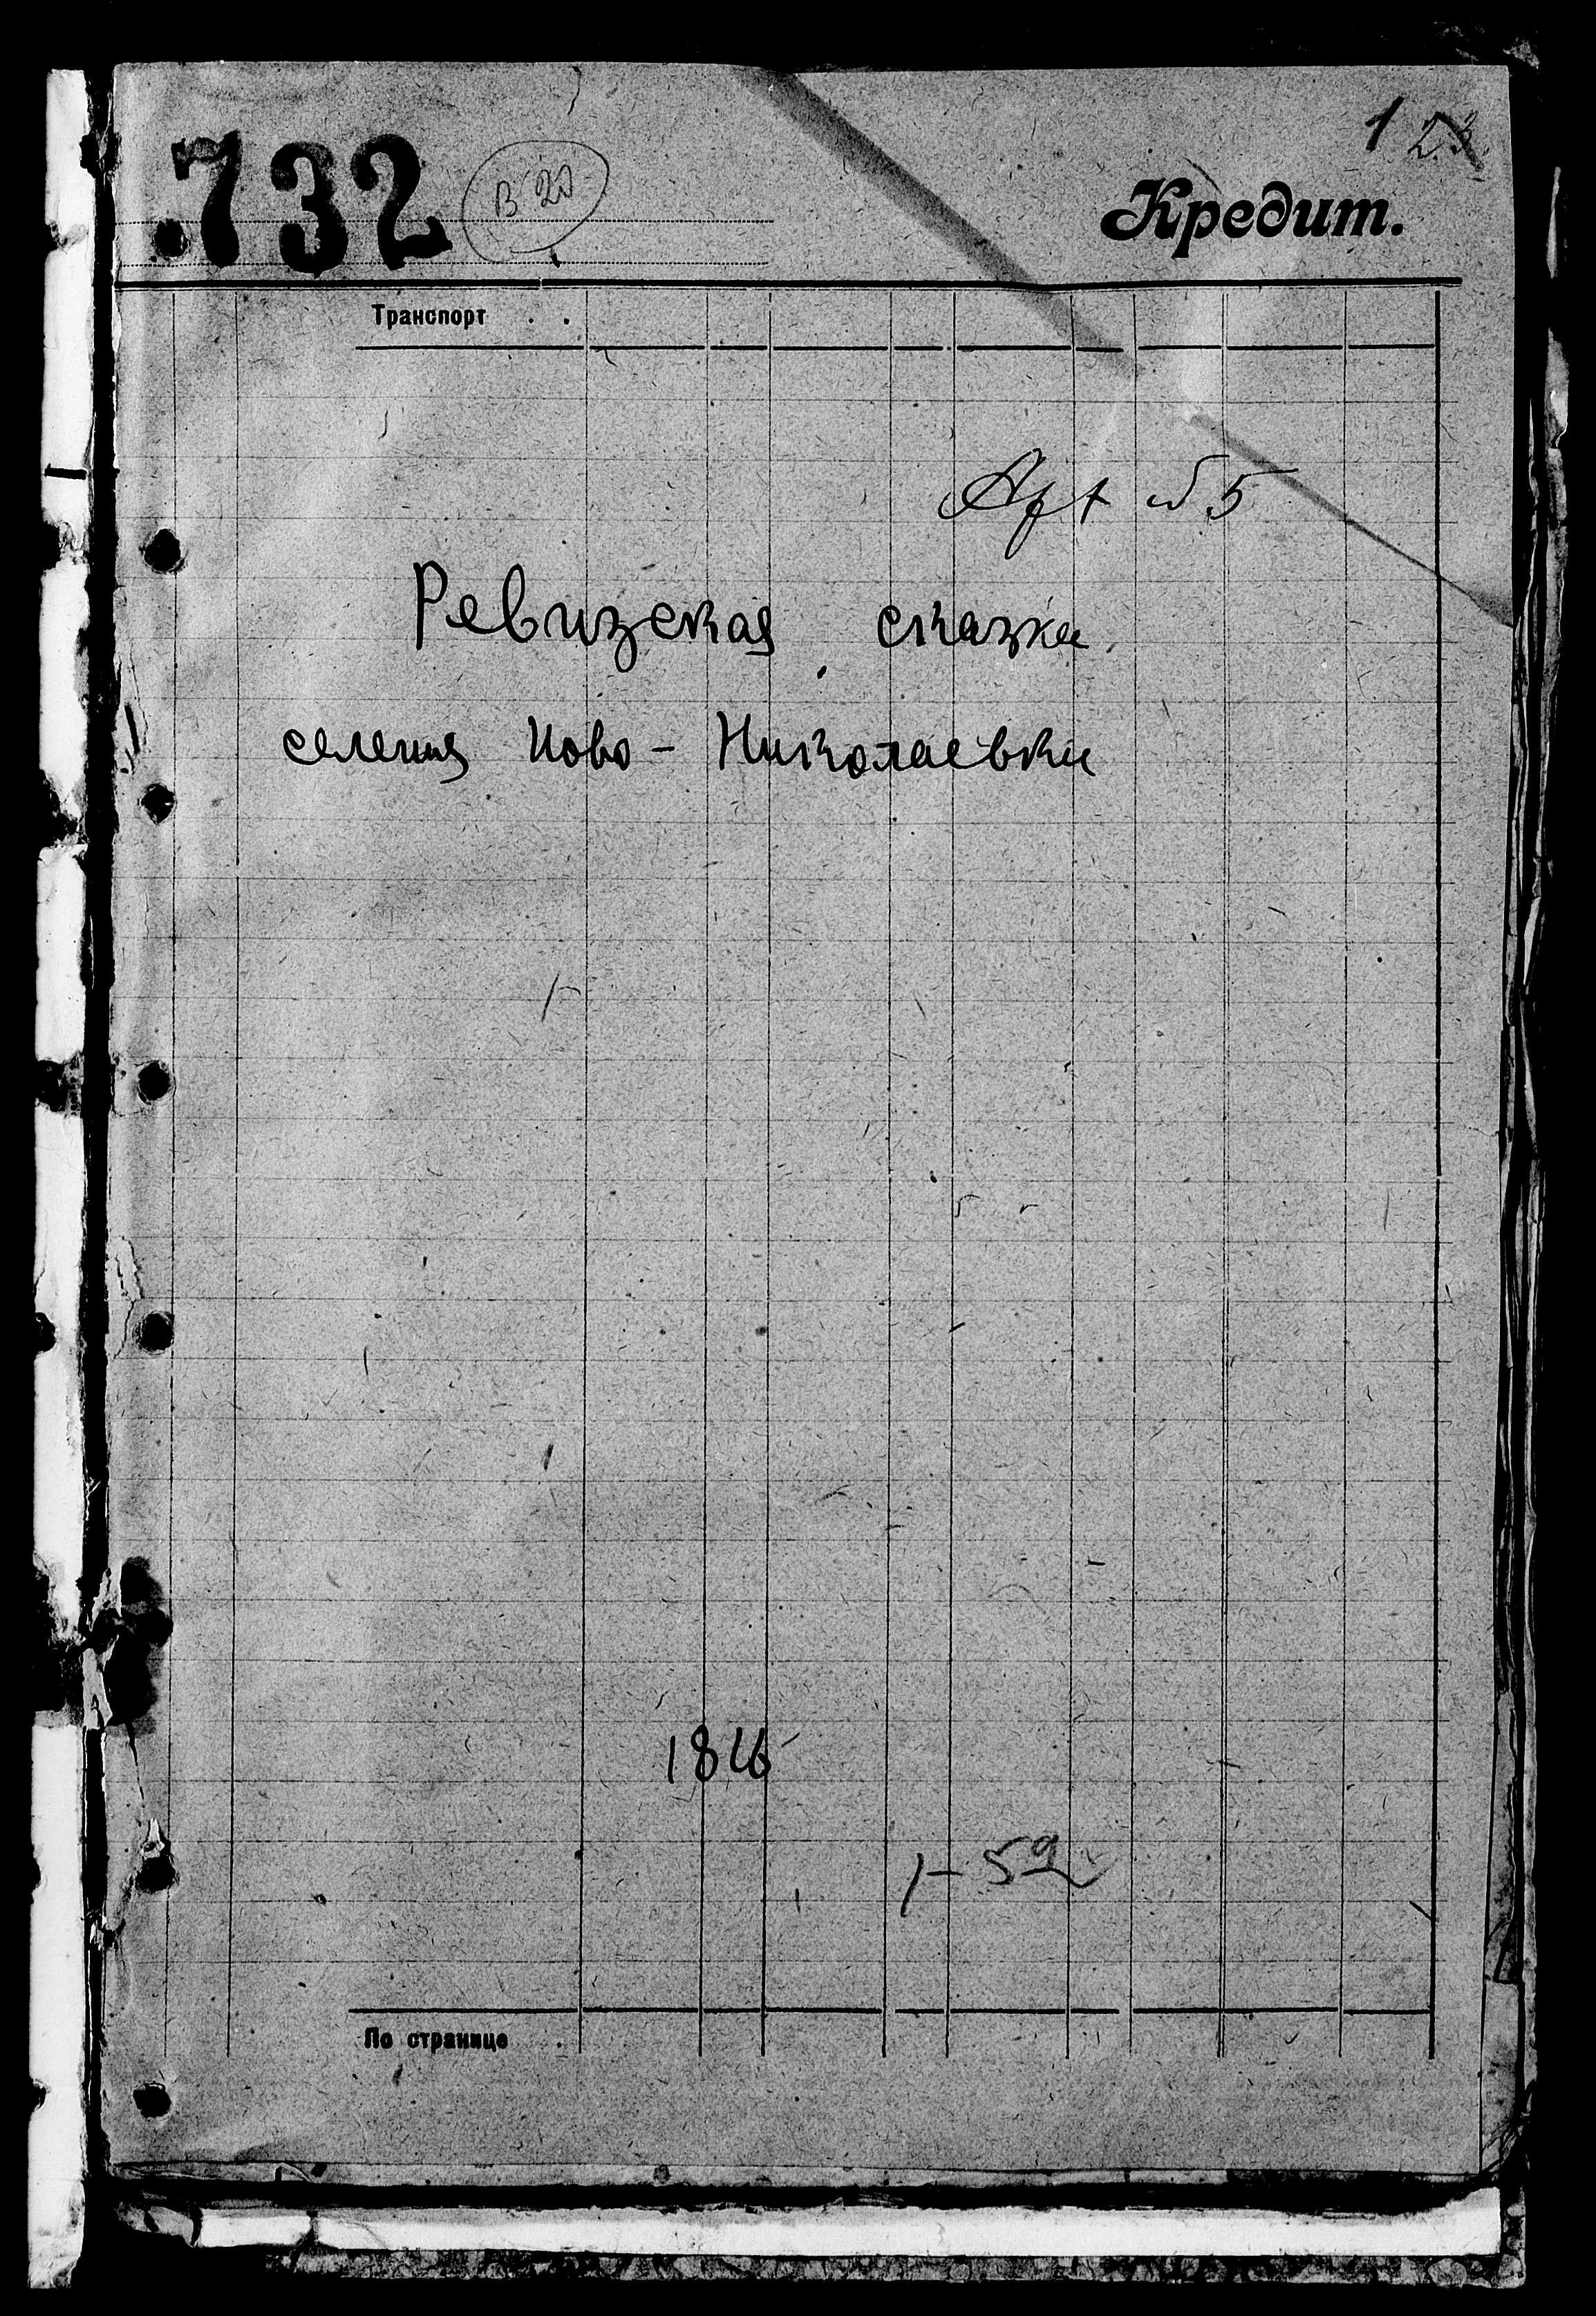 1 23
732
В 20
Кредит.
Транспорт . .
Арх №5
Ревизская сказки
селения Ново-Николаевки
1816
1-52
По странице .